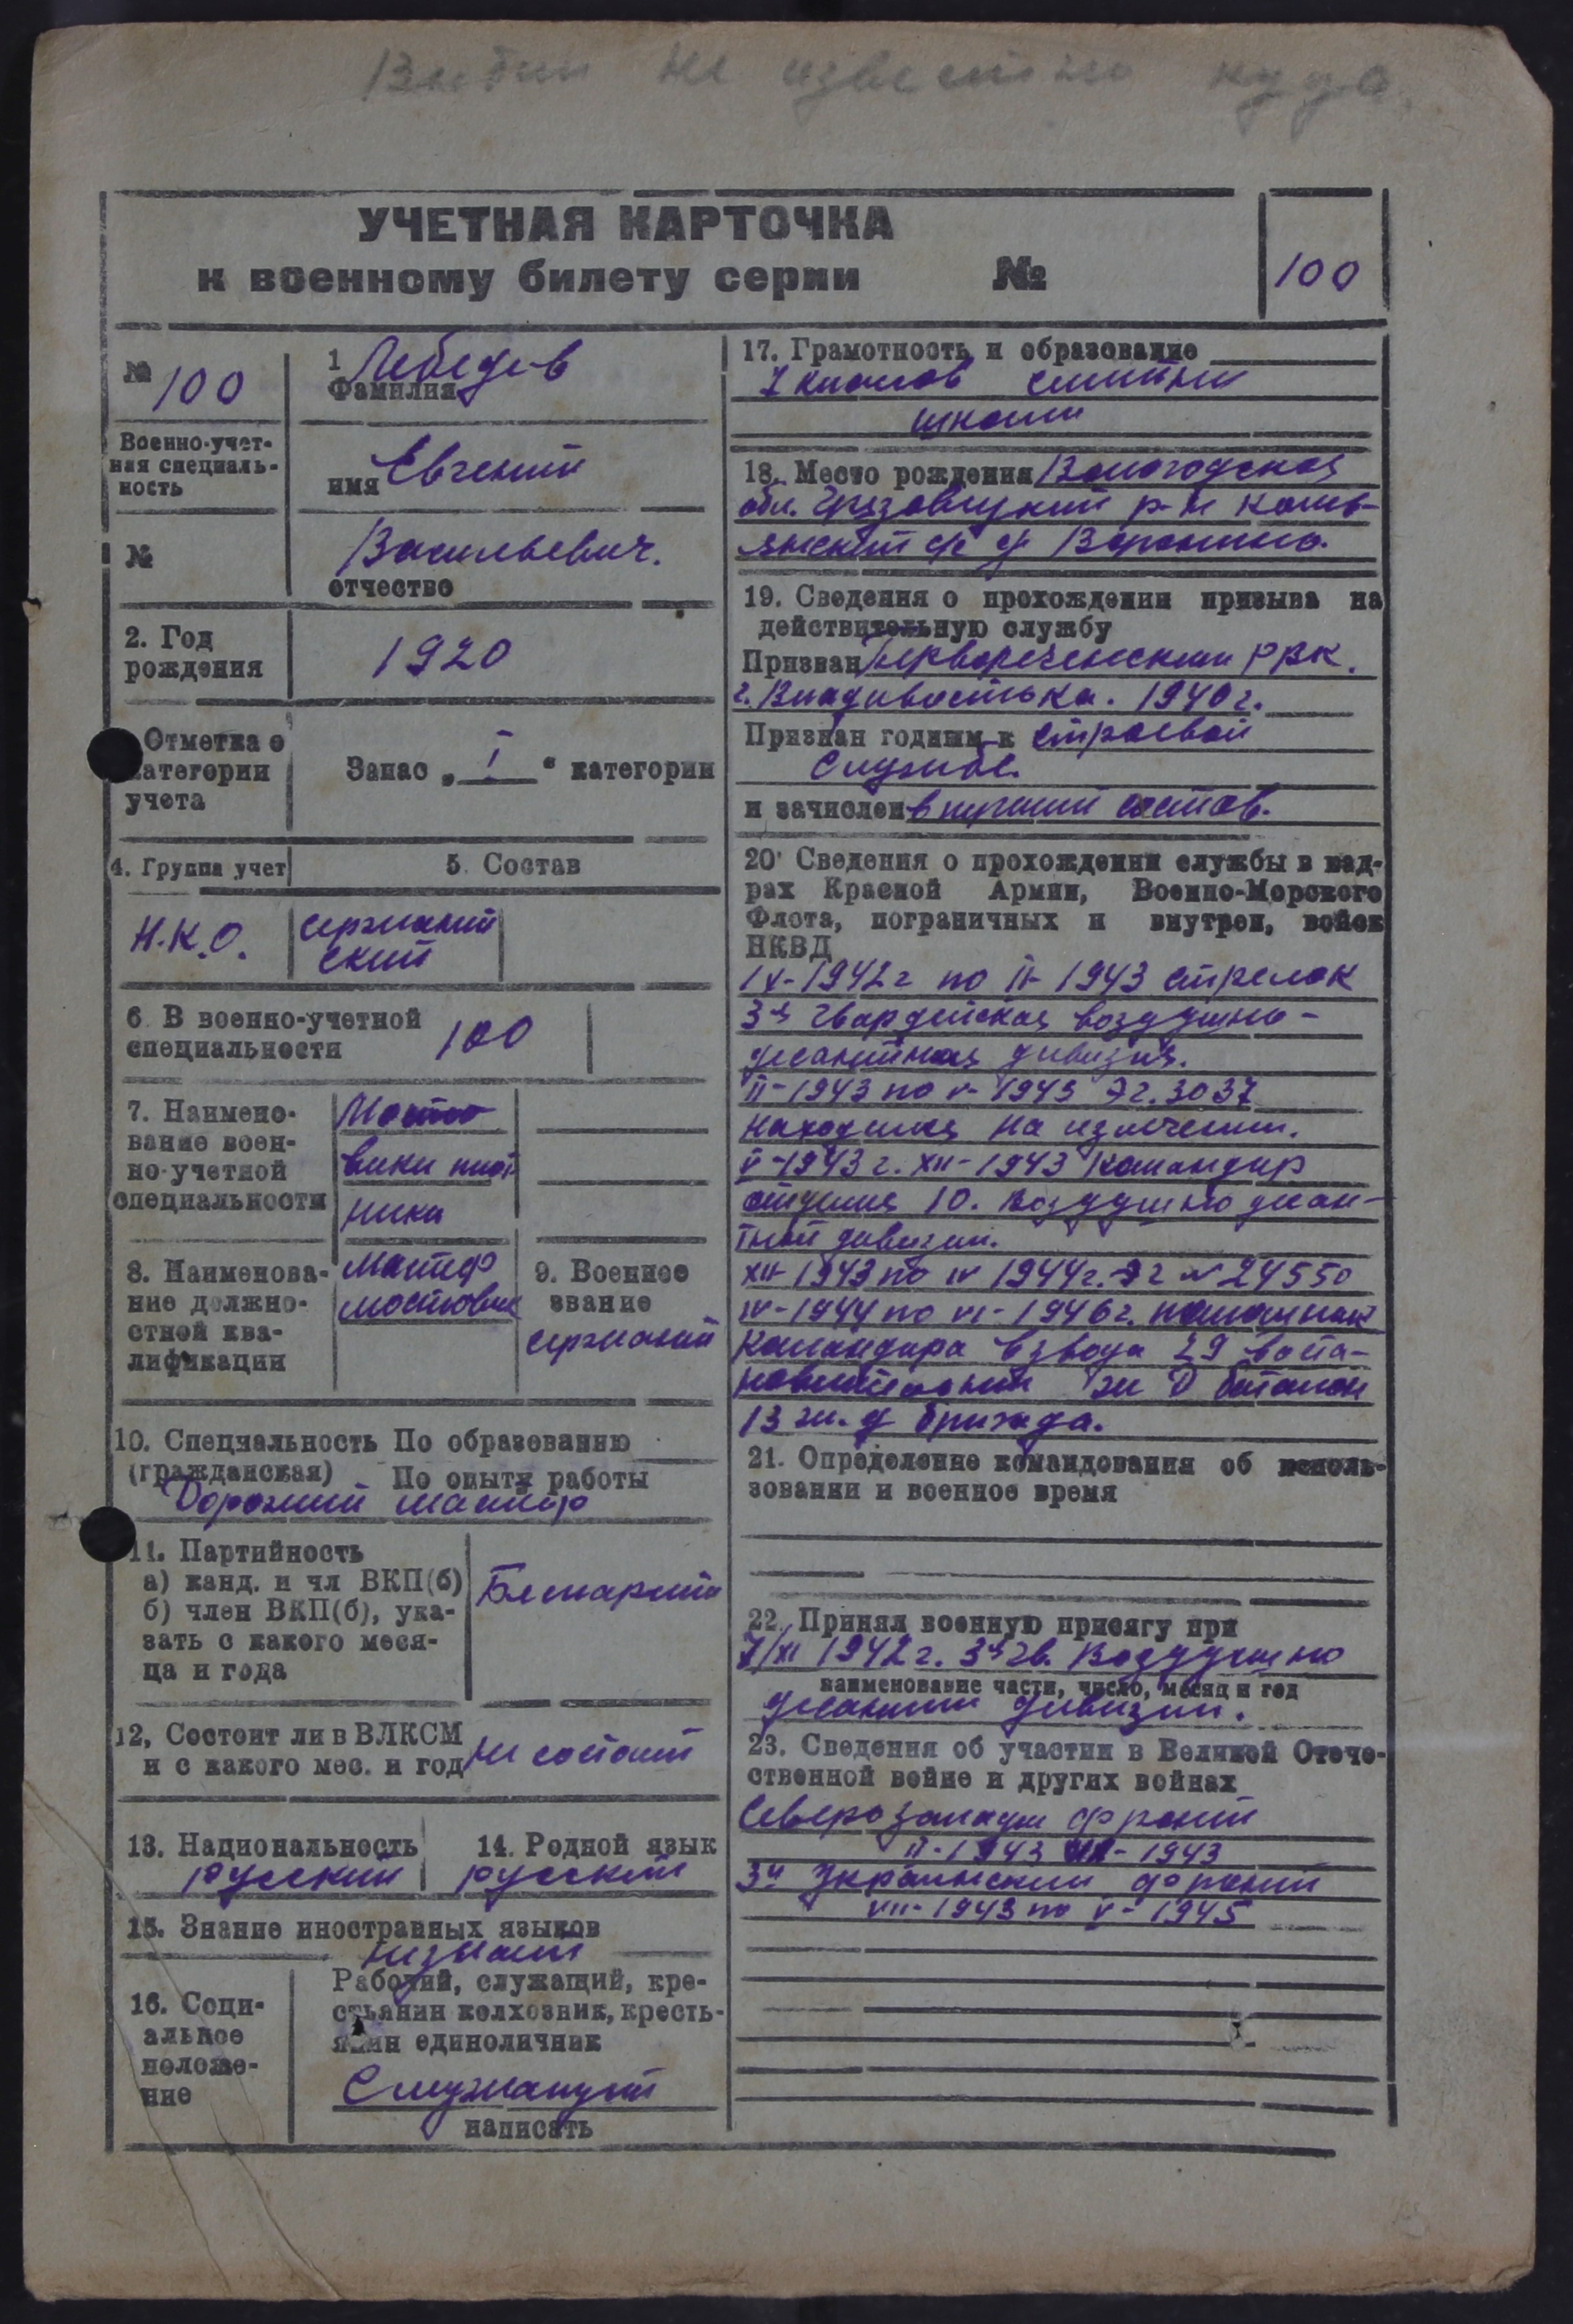 Выбыл не известно куда.
УЧЕТНАЯ КАРТОЧКА
к военному билету серии №
100
№ 100
1 Лебедев
Фамилия
Военно-учет-
ная специаль-
ность
имя Евгений
№
Васильевич.
отчество
2. Год
рождения
1920
Отметка о
категории
учета
Запас „ I “ категории
4. Группа учет
5. Состав
Н.К.О.
сержант
ский
6 В военно-учетной
специальности
100
7. Наимено-
вание воен-
но-учетной
специальности
Мосто
вики плот
ники
8. Наименова-
ние должно-
стной ква-
лификации
мастер
мостовик
9. Военное
звание
сержант
10. Специальность По образованию
(гражданская) По опыту работы
Дорожный мастер
11. Партийность
а) канд. и чл ВКП(б)
б) член ВКП(б), ука-
зать с какого меся-
ца и года
Беспарт
12, Состоит ли в ВЛКСМ
и с какого мес. и год
не состоит
13. Национальность
русский
14. Родной язык
русский
15. Знание иностранных языков
не знает
16. Соци-
альное
положе-
ние
Рабочий, служащий, кре-
стьянин колхозник, кресть-
янин единоличник
Служащий
написать
17. Грамотность и образование
7 классов
школы
18. Место рождения Вологодская
обл. Грязовецкий р-н
с/с д Воронино.
19. Сведения о прохождении призыва на
действительную службу
Призван Первореченским РВК.
г. Владивостока. 1940 г.
Признан годным к строевой
службе.
и зачислен в состав.
20 Сведения о прохождении службы в кад-
рах Красной Армии, Военно-Морского
Флота, пограничных и внутрен, войск
НКВД
IV-1942 г по II-1943 стрелок
3я гвардейская воздушно-
десантная дивизия.
II-1943 по V-1943 Эг. 3037
находился на излечении.
V-1943 г. XII-1943 командир
отделения 10. воздушно десан-
тной дивизии.
XII-1943 по IV 1944 г. Эг № 24550
IV-1944 по VI-1946 г. помощник
командира взвода 29 воста-
новительный ж Д батальон
13 ж. д бригада.
21. Определение командования об исполь-
зовании и военное время
22. Принял военную присягу при
7/XI 1942 г. 3я гв. Воздушно
наименование части, число, месяц и год
десантной дивизии.
23. Сведения об участии в Великой Отече-
ственной войне и других войнах
Северозападн фронт
II-1943 - 1943
3й Украинский фронт
VII-1943 по V-1945